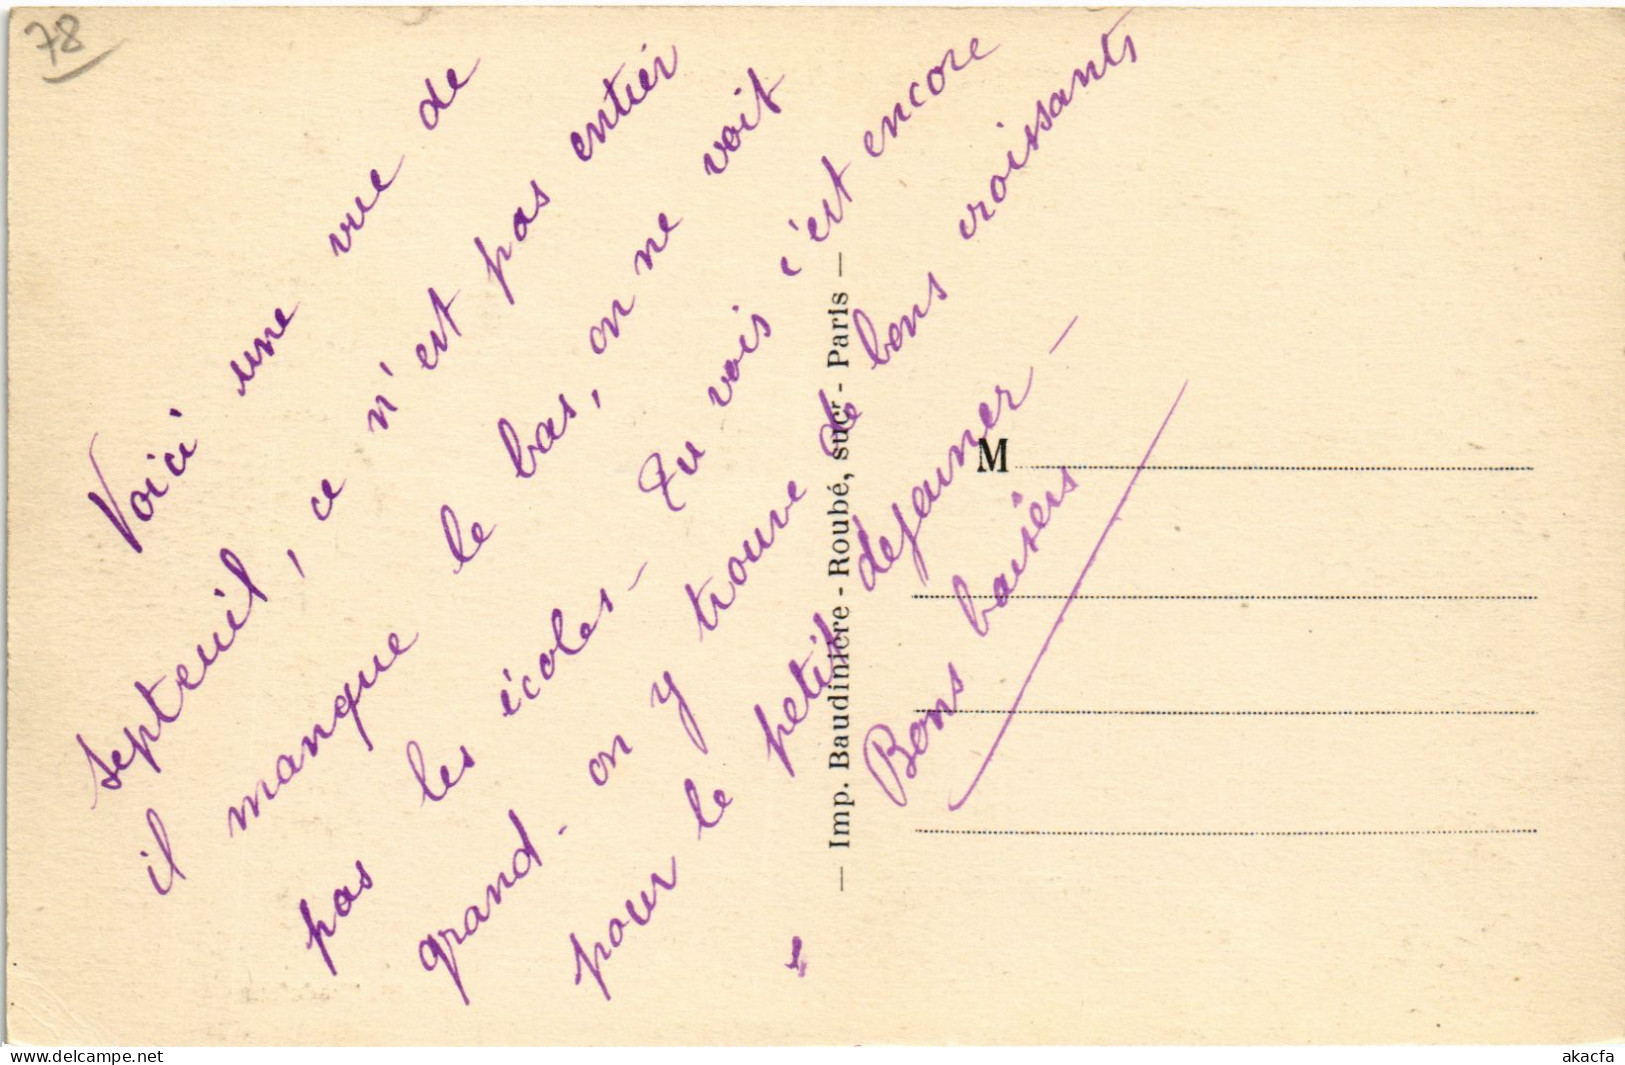 78
Voici une vue de
Septeuil, ce n'est pas entier
il manque le bas, on ne voit
pas les écoles - Tu vois c'est encore
grand - on y trouve de bons croissants
pour le petit dejeuner -
Bons baisers
— Imp. Baudinière - Roubé, sucr - Paris —
M
www.delcampe.net
akacfa